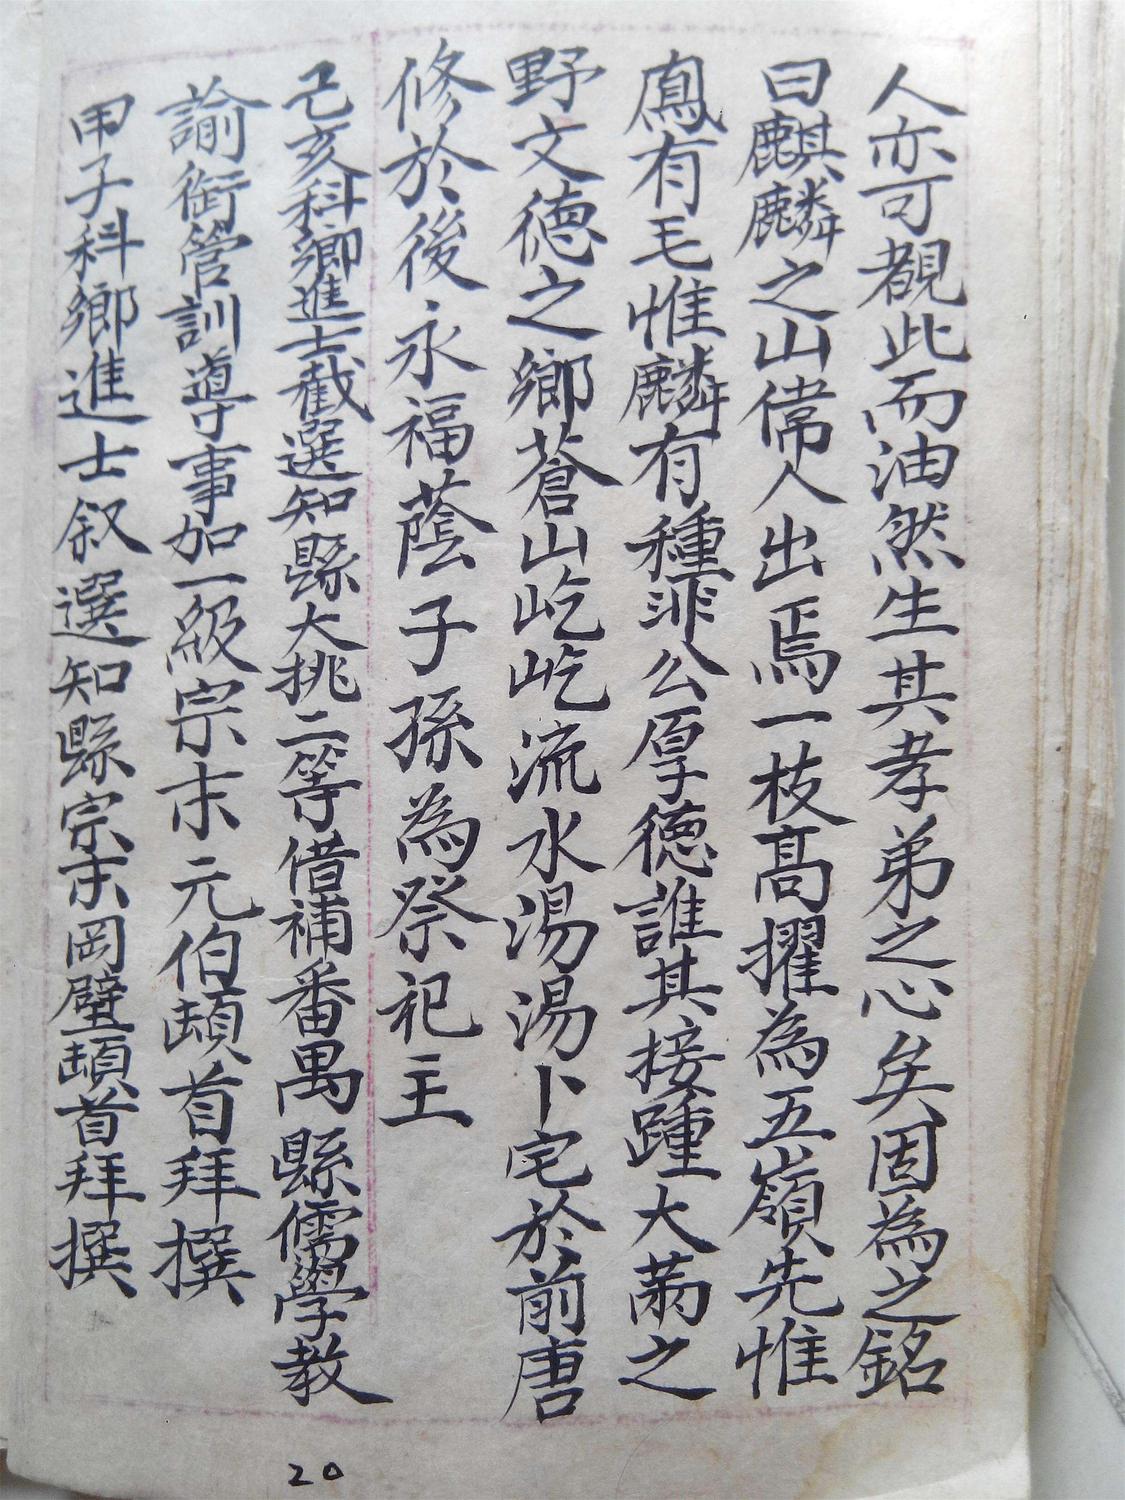 人亦可覩此而油然生其孝弟之心矣因為之銘
曰麒麟之山偉人出焉一枝高擢為五嶺先惟
鳳有毛惟麟有種非公厚德誰其接踵大萳之
野文德之鄉蒼山屹屹流水湯湯卜宅於前唐
修於後永福蔭子孫為祭祀主
己亥科鄉進士截選知縣大挑二等借補番禺縣儒學教
諭銜管訓導事加一級宗末元伯頓首拜撰
甲子科鄉進士叙選知縣宗末岡壁頓首拜撰
20